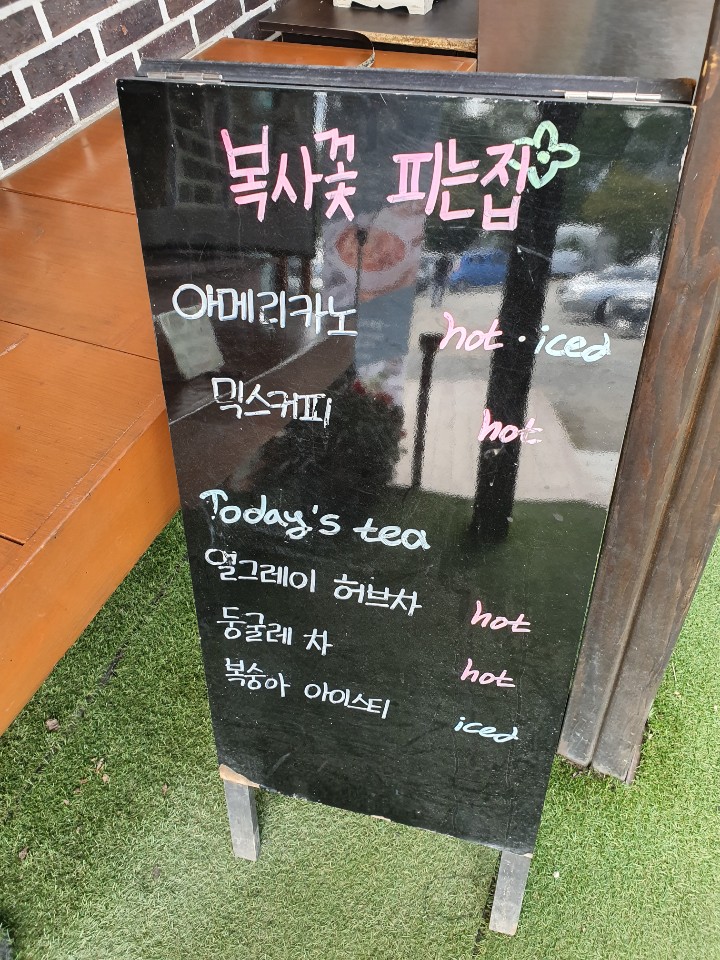 복사꽃 피는집
아메리카노 hot · iced
믹스커피 hot
Today's tea
얼그레이 허브차 hot
둥굴레 차 hot
복숭아 아이스티 iced